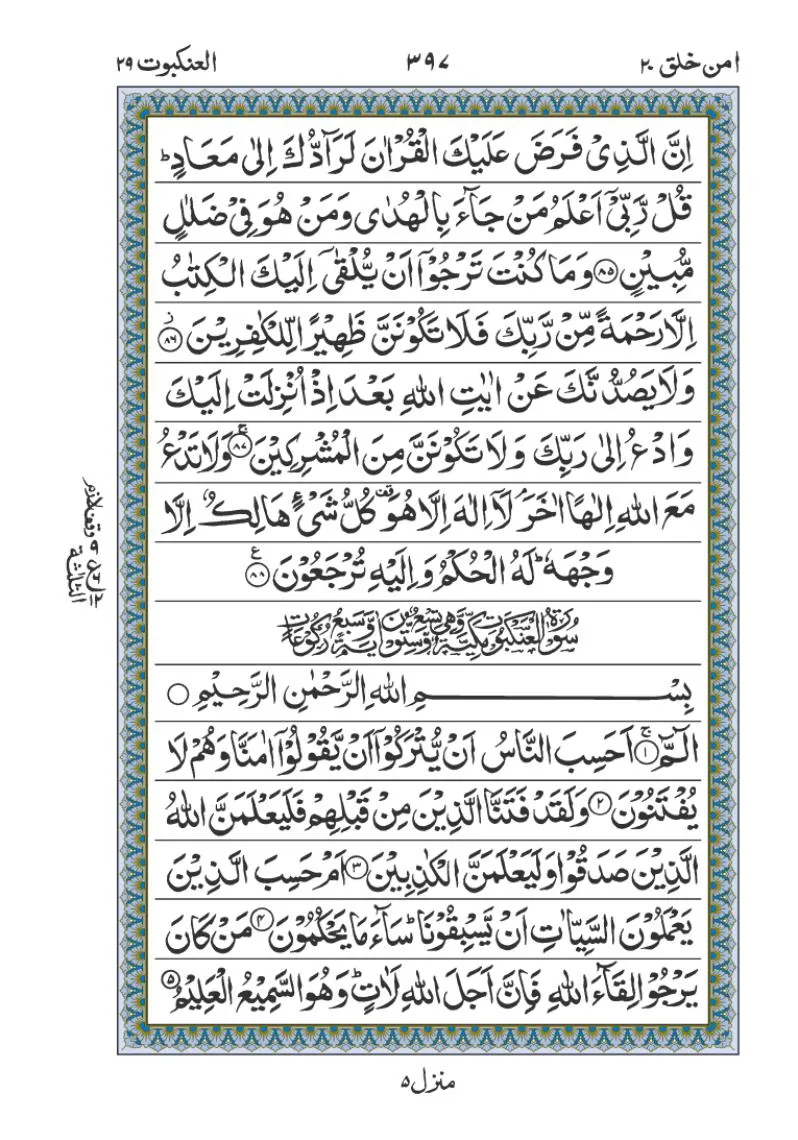 امن خلق ۲۰ ۳۹۷ العنكبوت ۲۹
اِنَّ الَّذِیْ فَرَضَ عَلَیْكَ الْقُرْاٰنَ لَرَآدُّكَ اِلٰی مَعَادٍ ؕ
قُلْ رَّبِّیْۤ اَعْلَمُ مَنْ جَآءَ بِالْهُدٰی وَمَنْ هُوَ فِیْ ضَلٰلٍ
مُّبِیْنٍ ۝۸۵ وَمَا كُنْتَ تَرْجُوْۤا اَنْ یُّلْقٰۤی اِلَیْكَ الْكِتٰبُ
اِلَّا رَحْمَةً مِّنْ رَّبِّكَ فَلَا تَكُوْنَنَّ ظَهِیْرًا لِّلْكٰفِرِیْنَ ۝۸۶ؗ
وَلَا یَصُدُّنَّكَ عَنْ اٰیٰتِ اللّٰهِ بَعْدَ اِذْ اُنْزِلَتْ اِلَیْكَ
وَادْعُ اِلٰی رَبِّكَ وَلَا تَكُوْنَنَّ مِنَ الْمُشْرِكِیْنَ ۝۸۷ۚ وَلَا تَدْعُ
مَعَ اللّٰهِ اِلٰهًا اٰخَرَ ۘ لَاۤ اِلٰهَ اِلَّا هُوَ ۫ كُلُّ شَیْءٍ هَالِكٌ اِلَّا
وَجْهَهٗ ؕ لَهُ الْحُكْمُ وَاِلَیْهِ تُرْجَعُوْنَ ۝۸۸
سُوْرَةُ الْعَنْكَبُوْتِ مَكِّیَّةٌ وَّهِیَ تِسْعٌ وَّسِتُّوْنَ اٰیَةً وَّسَبْعُ رُكُوْعَاتٍ
بِسْمِ اللّٰهِ الرَّحْمٰنِ الرَّحِیْمِ ۝
الٓمّٓ ۝۱ۚ اَحَسِبَ النَّاسُ اَنْ یُّتْرَكُوْۤا اَنْ یَّقُوْلُوْۤا اٰمَنَّا وَهُمْ لَا
یُفْتَنُوْنَ ۝۲ وَلَقَدْ فَتَنَّا الَّذِیْنَ مِنْ قَبْلِهِمْ فَلَیَعْلَمَنَّ اللّٰهُ
الَّذِیْنَ صَدَقُوْا وَلَیَعْلَمَنَّ الْكٰذِبِیْنَ ۝۳ اَمْ حَسِبَ الَّذِیْنَ
یَعْمَلُوْنَ السَّیِّاٰتِ اَنْ یَّسْبِقُوْنَا ؕ سَآءَ مَا یَحْكُمُوْنَ ۝۴ مَنْ كَانَ
یَرْجُوْا لِقَآءَ اللّٰهِ فَاِنَّ اَجَلَ اللّٰهِ لَاٰتٍ ؕ وَهُوَ السَّمِیْعُ الْعَلِیْمُ ۝۵
وقف لازم
الثلثة
منزل ۵